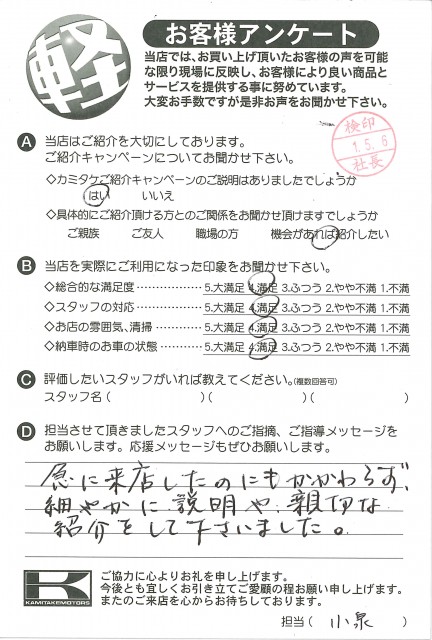 軽
お客様アンケート
当店では、お買い上げ頂いたお客様の声を可能
な限り現場に反映し、お客様により良い商品と
サービスを提供する事に努めています。
大変お手数ですが是非お声をお聞かせ下さい。
検印
1.5.6
社長
A 当店はご紹介を大切にしております。
ご紹介キャンペーンについてお聞かせ下さい。
◇カミタケご紹介キャンペーンのご説明はありましたでしょうか
はい いいえ
◇具体的にご紹介頂ける方とのご関係をお聞かせ頂けますでしょうか
ご親族 ご友人 職場の方 機会があれば紹介したい
B 当店を実際にご利用になった印象をお聞かせ下さい。
◇総合的な満足度 ……………… 5.大満足 4.満足 3.ふつう 2.やや不満 1.不満
◇スタッフの対応 ……………… 5.大満足 4.満足 3.ふつう 2.やや不満 1.不満
◇お店の雰囲気、清掃 ………… 5.大満足 4.満足 3.ふつう 2.やや不満 1.不満
◇納車時のお車の状態 ………… 5.大満足 4.満足 3.ふつう 2.やや不満 1.不満
C 評価したいスタッフがいれば教えてください。(複数回答可)
スタッフ名( )( )( )
D 担当させて頂きましたスタッフへのご指摘、ご指導メッセージを
お願いします。応援メッセージもぜひお願いします。
急に来店したのにもかかわらず、
細やかに説明や、親切な
紹介をして下さいました。
K
KAMITAKE MOTORS
ご協力に心よりお礼を申し上げます。
今後とも宜しくお引き立てご愛顧の程お願い申し上げます。
またのご来店を心からお待ちしております。
担当( 小泉 )